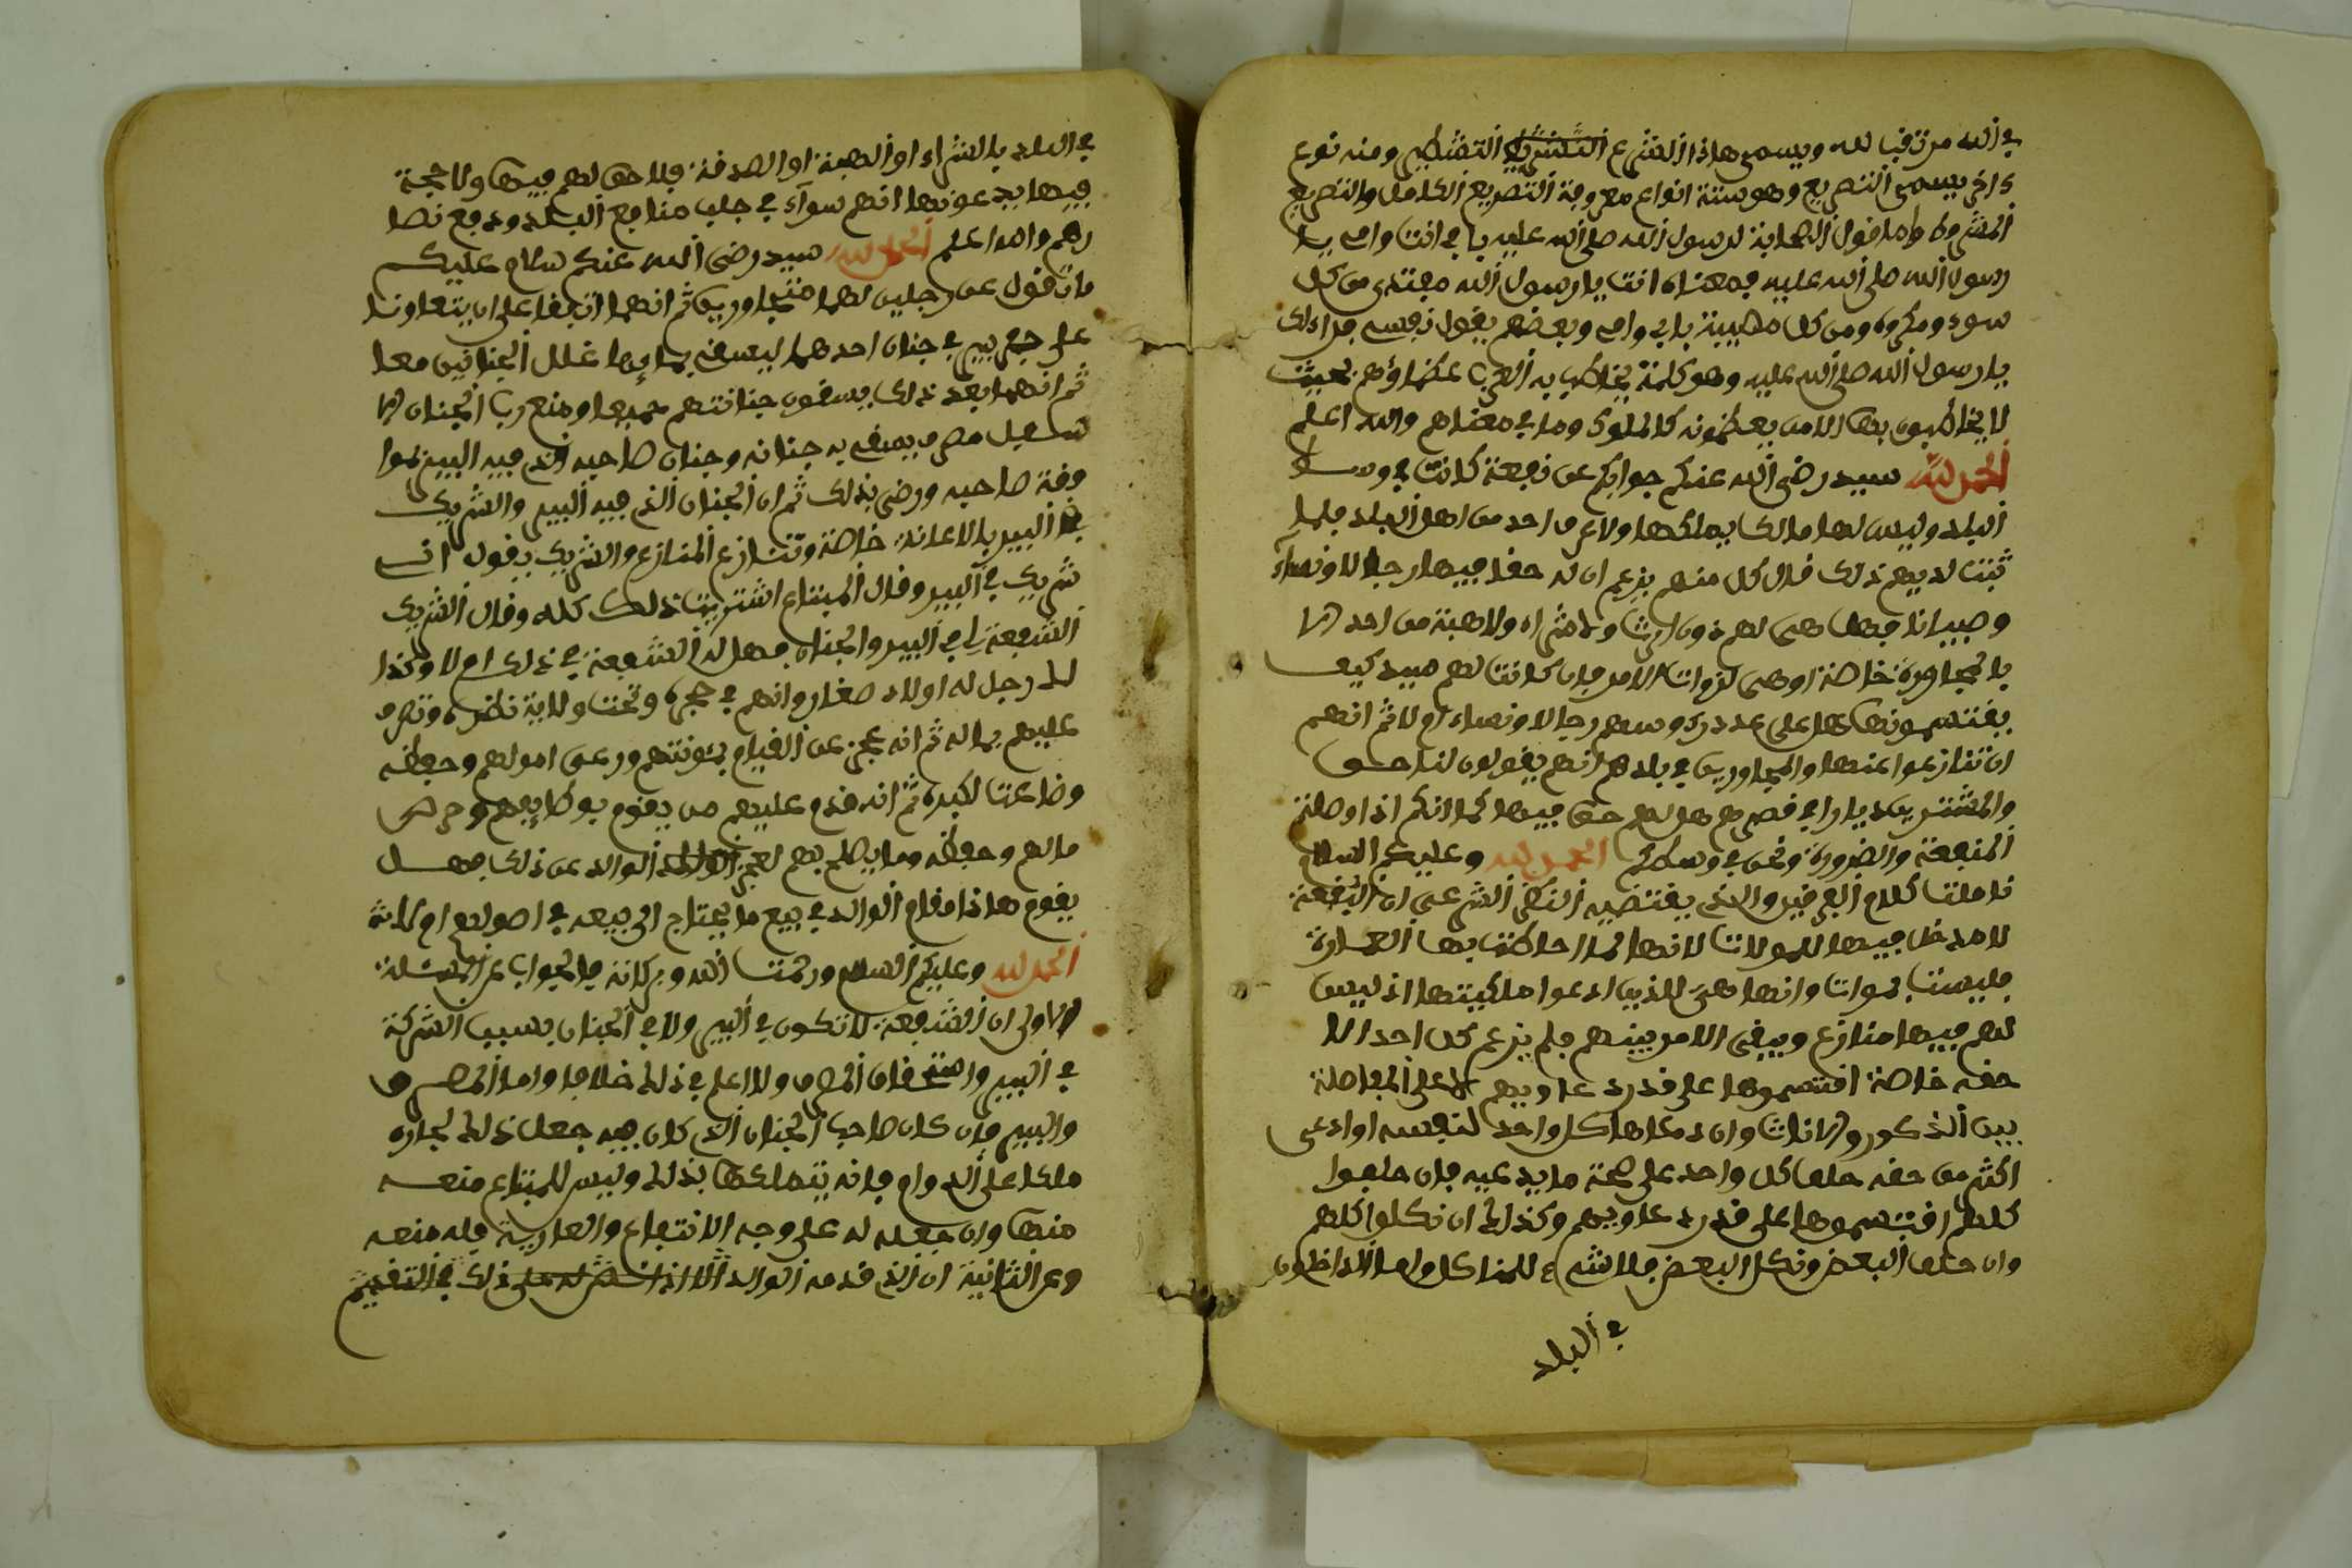 في الله مرتقب لله ويسمى هاذا الشرع التشطير ومنه نوع
ءاخر يسمى التصريع وهو ستة انواع معروفة التصريع الكامل والتصريع
المشروط واما قول الصحابة لرسول الله صلى الله عليه بابي انت وامي يا
رسول الله صلى الله عليه فمعناه انت يا رسول الله مفتدى من كل
سوء ومكروه ومن كل مصيبة بابي وامي وبعضهم يقول نفسي فداءك
يا رسول الله صلى الله عليه وهو كلمة يخاطب به العرب عظماؤهم بحيث
لا يخاطبون بها الا من يعظمونه كالملوك وما في معناهم والله اعلم
الحمد لله سيد رضي الله عنكم جوابكم عن نقعة كانت في وسط
البلد وليس لها مالك يملكها ولا عرف احد من اهل البلد فلما
ثبت لديهم ذلك قال كل منهم يزعم ان له حقا فيها رجالا ونساء
وصبيانا فهل هي لهم دون ارث ولا شراء ولا هبة من احد الا
بالمجاورة خاصة او هي لذوات الامر فان كانت لهم سيد كيف
يقتسمونها هل على عدد رءوسهم رجالا ونساء ام لا ثم انهم
ان تنازعوا عنها والمجاورين في بلدهم انهم يقولون لنا حق
والمشترين ديارا في قصرهم هل لهم حق فيها كما انكم اذا وصلت
المنفعة والضرورة ونحن في وسطكم الحمد لله وعليكم السلام
تاملت كلام الفريقين والذي يقتضيه النظر الشرعي ان النقعة
لا مدخل فيها للموالات لانها لما احاطت بها العمارة
فليست بموات وانها هي للذين ادعوا ملكيتها اذ ليس
لهم فيها منازع وبقي الامر بينهم فلم يزعم كل احد الا
حقه خاصة اقتسموها على قدر دعاويهم لا على المفاصلة
بين الذكور والاناث وان ادعاها كل واحد لنفسه او ادعى
اكثر من حقه حلف كل واحد على صحة ما يدعيه فان حلفوا
كلهم اقتسموها على قدر دعاويهم وكذلك ان نكلوا كلهم
وان حلف البعض ونكل البعض فلا شيء للناكل واما الداخلون
في البلد
في البلد بالشراء او الهبة او الصدقة فلا حق لهم فيها ولا حجة
فيها يدعونها انهم سواء في جلب منافع البلد ودفع مضا
رهم والله اعلم الحمد لله سيد رضي الله عنكم سلام عليكم
ما تقول عن رجلين لهما متجاورين ثم انهما اتفقا على ان يتعاونا
على حفر بير في جنان احدهما ليسقي بمايها غلل الجنانين معا
ثم انهما بعد ذلك يسقون جنانتهم جميعا ومنع رب الجنان الا
سهيل مصرف يسقي به جنانه وجنان صاحبه الذي فيه البير بموا
فقة صاحبه ورضي بذلك ثم ان الجنان الذي فيه البير والشريك
في البير بالاعانة خاصة وتنازع المنازع والشريك يقول اني
شريك في البير وقال المبتاع اشتريت ذلك كله وقال الشريك
الشفعة لي في البير والجنان فهل له الشفعة في ذلك ام لا وكذا
لك رجل له اولاد صغار وانهم في حجره وتحت ولاية نظره وتصرف
عليهم بماله ثم انه عجز عن القيام بمئونتهم ورعى امولهم وحفظه
وضاعت لكبره ثم انه قدم عليهم من يقوم بوظايفهم وحرص
مالهم وحفظه وما يصلح بهم لعجز الوالد عن ذلك فهل
يقوم هاذا مقام الوالد في بيع ما يحتاج الى بيعه في اصولهم ام لا
الحمد لله وعليكم السلام ورحمت الله وبركاته فالجواب عن المسئلة
الاولى ان الشفعة لا تكون في البير ولا في الجنان بسبب الشركة
في البير واستحقاق المصرف ولا اعلم في ذلك خلافا واما المصرف
والبير فان كان صاحب الجنان الذي كان فيه جعل ذلك لجاره
ملكا على الدوام فانه يتملكها بذلك وليس للمبتاع منعه
منها وان جعله له على وجه الانتفاع والعارية فله منعه
وعن الثانية ان الذي قدمه الوالد ذلك في التقديم